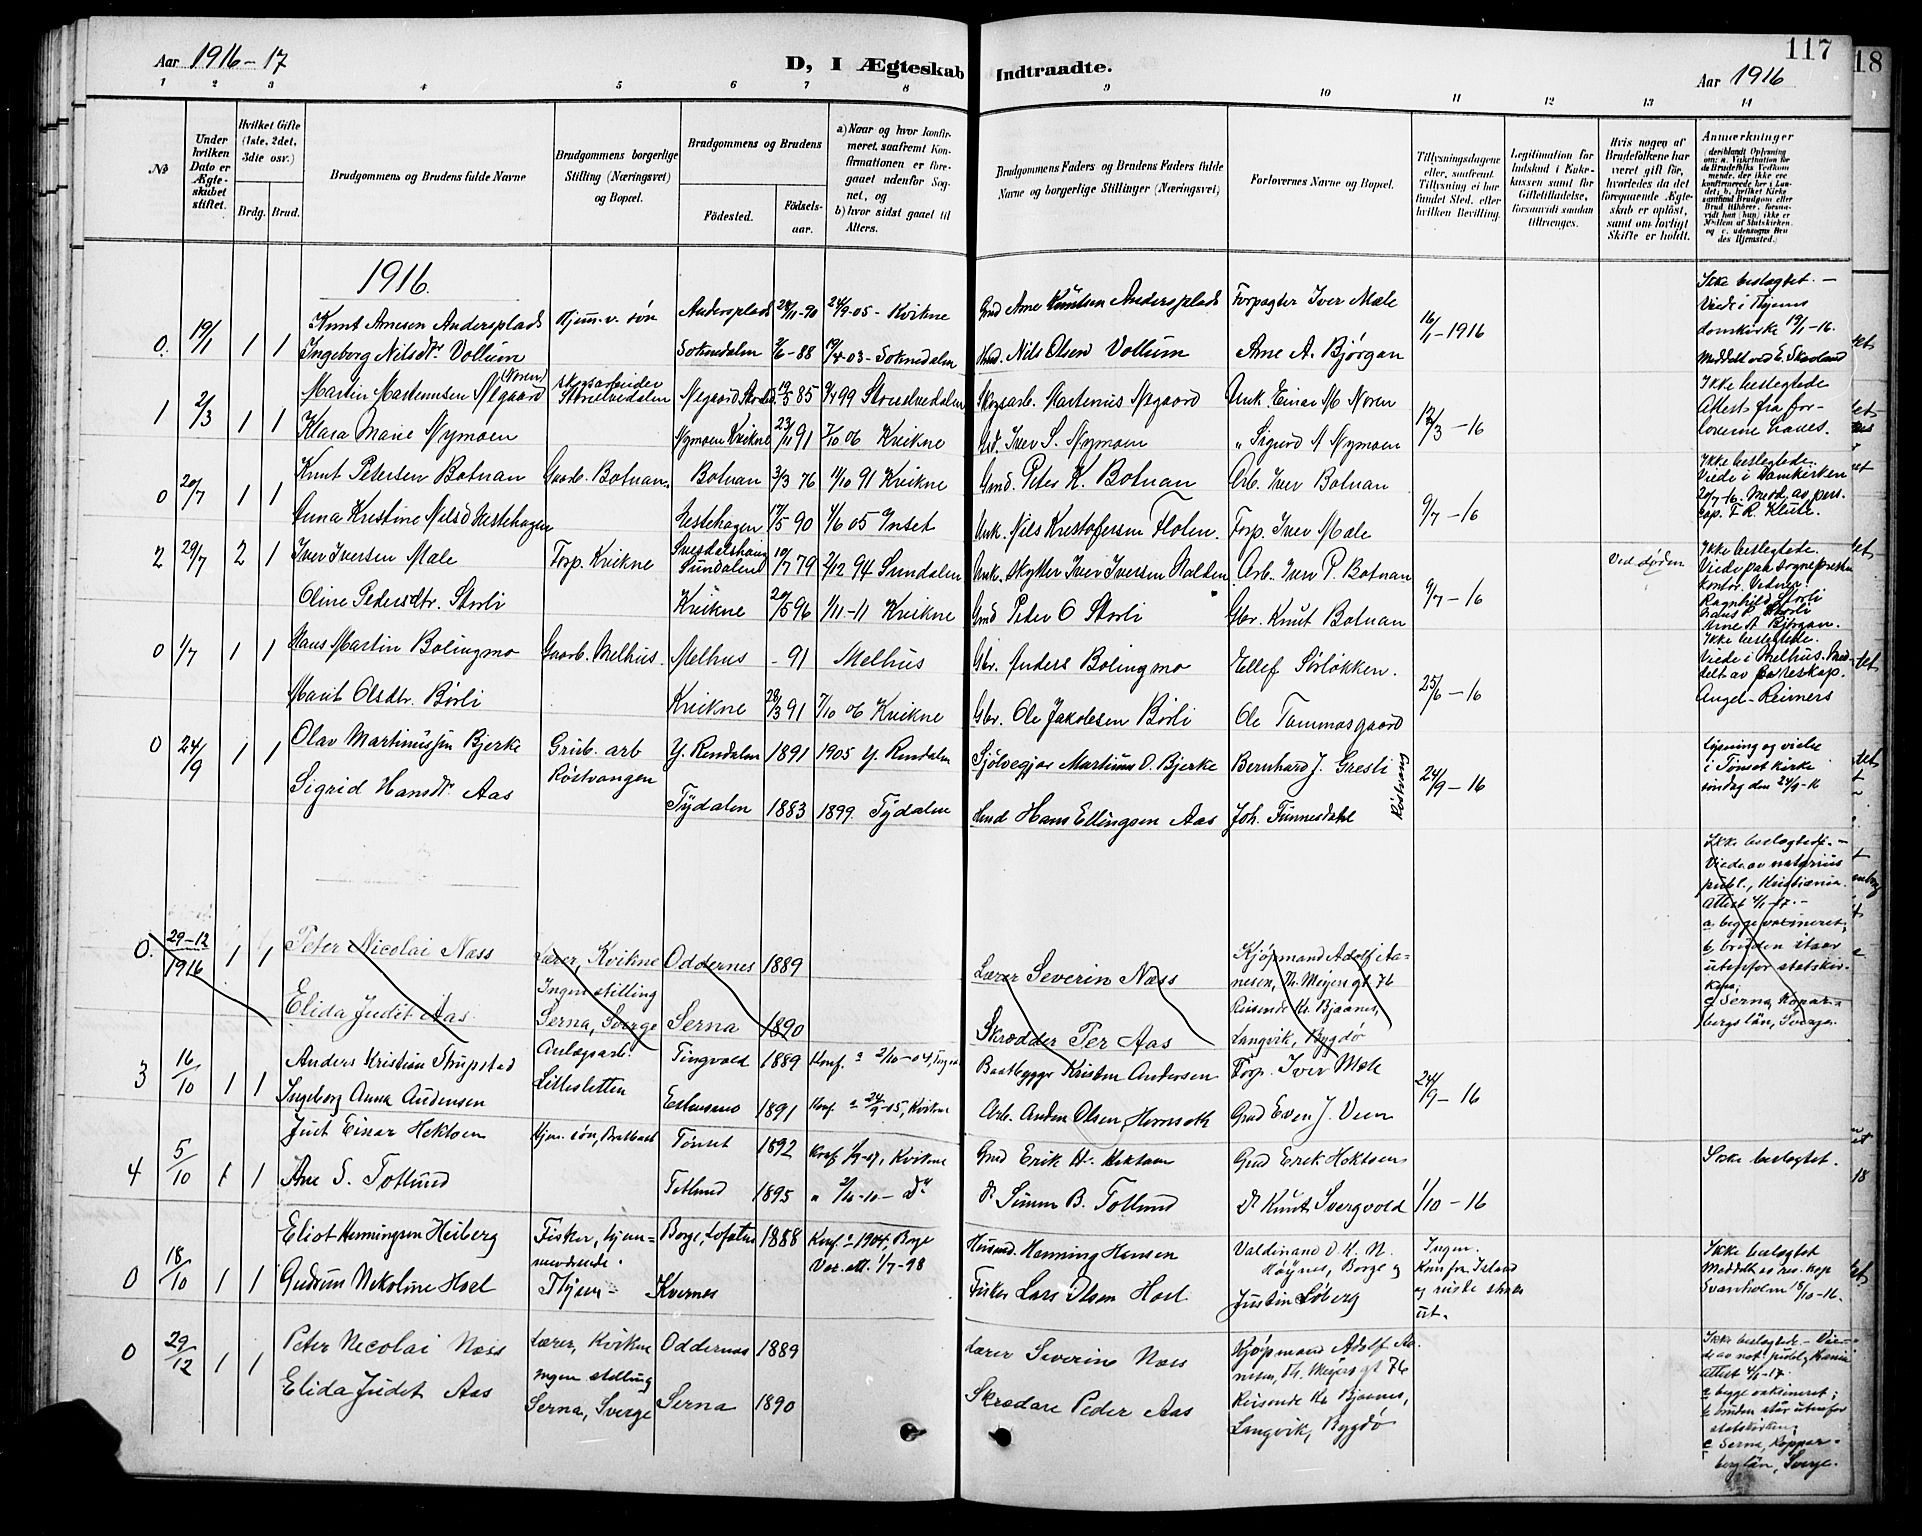 117
18
Aar 1916-17
D, I Ægteskab Indtraadte.
Aar 1916
1 2 3 4 5 6 7 8 9 10 11 12 13 14
No
Under hvilken Dato er Ægteskabet stiftet.
Hvilket Gifte (1ste, 2det, 3die osv.)
Brdg. Brud.
Brudgommens og Brudens fulde Navne
Brudgommens borgerlige Stilling (Næringsvei) og Bopæl.
Brudgommens og Brudens
Fødested.
Fødselsaar.
a) Naar og hvor konfirmeret, saafremt Konfirmationen er foregaaet udenfor Sognet, og
b) hvor sidst gaaet til Alters.
Brudgommens Faders og Brudens Faders fulde Navne og borgerlige Stillinger (Næringsvei)
Forlovernes Navne og Bopæl.
Tillysningsdagene eller, saafremt Tillysning ei har fundet Sted, efter hvilken Bevilling.
Legitimation for Indskud i Enkekassen samt for Giftetilladelse, forsaavidt saadan tiltrænges.
Hvis nogen af Brudefolkene har været gift før, hvorledes da det foregaaende Ægteskab er opløst, samt om lovligt Skifte er holdt.
Anmærkninger
1916.
0. 19/1 1 1 Knut Arnesen Andersplads Hjem.v. søn Andersplads 28/11-90 24/9-05- Kvikne Gmd Arne Knutsen Andersplads Forpagter Iver Mæle 16/1-1916 Ikke beslægtet.- Viede i Thjems domkirke 19/1-16. Meddelt ved E. Skavland
Ingeborg Nilsdtr. Vollum Soknedalen 2/6-88 19/4-03- Soknedalen Nils Olsen Vollum Arne A. Bjørgan
1 2/3 1 1 Martin Martinusen Mogaard (Noren) Skogsarbeider Storelvedalen 19/5 85 99 Storelvedalen Skogsarb. Martinus Mogaard Unk. Einar M Noren 12/3-16 Ikke beslegtede Attest fra forloverne haves.
Klara Marie Nymoen Nymoen Kvikne 23/11 91 7/10 06 Kvikne Iver S. Nymoen " Sigurd Nymoen
0 20/7 1 1 Knut Petersen Botnan Gaardb. Botnan. Botnan 3/3 76 4/10 91 Kvikne Gmd. Peter K. Botnan Arb. Iver Botnan 9/7-16 Ikke beslegtede. Viede i Domkirken 20/7-16. Medd. av pers. kap. F. R. Kleste.
Anna Kristine Nilsd Hestehagen Hestehagen 17/5-90 4/6 05 Inset Unk. Nils Kristofersen Floten. Forp. Iver Mæle
2 29/7 2 1 Iver Iversen Mæle Forp. Kvikne Sundalen 10/7 79 2/12 94 Sundalen Unk. Skytter Iver Iversen Halden Arb. Iver P. Botnan 9/7-16 Ved døden Ikke beslegtede. Viede paa sogneprestens kontor. Vidner: Ragnhild Storli Hans P. Storli Arne A. Bjørgan.
Oline Pedersdtr. Storli Kvikne 20/5 96 1/11-11 Kvikne Gmd Peder O Storli Gbr. Knut Botnan
0 1/7 1 1 Hans Martin Bolingmo Gaardb. Melhus. Melhus - 91 Melhus Gbr. Anders Bolingmo Ellef Sørløkken. 25/6-16 Ikke beslegtede. Viede i Melhus. Meddelt av Angel-Reimers
Marit Olsdtr. Børli Kvikne 28/3 91 7/10 06 Kvikne Gbr. Ole Jakobsen Børli Ole Tammasgaard
0 24/9 1 1 Olav Martinussen Bjerke Grub. arb Røstvangen Y. Rendalen 1891 1905 Y. Rendalen Martinus O. Bjerke Bernhard J. Gresli Røstvang 24/9-16 Lysning og vielse i Tønset kirke søndag den 24/9-16
Sigrid Hansdtr. Aas Tydalen 1883 1899. Tydalen Gmd Hans Ellingsen Aas Joh. Finnesdahl
0. 29-12 1916 1 1 Peter Nicolai Næss Lærer, Kvikne Oddernes 1889 Lærer Severin Næss Kjøpmand Adolf Aanesen, Th. Meyers gt 76 Ikke beslægtede.- Viede av notarius publ., Kristiania. Attest 4/1-17.- a. begge vaksineret; b. bruden staar utenfor statskirken; c. Serna, Kopparbergs län, Sverge.
Elida Judit Aas Ingen stilling Serna, Sverge Serna 1890 Skrædder Per Aas Reisende Kr. Bjaanes, Langvik, Bygdø
3 16/10 1 1 Anders Kristian Thupstad Anlægsarb. Lillesletten Tingvold 1889 Konf. 2/10-04, Baatbygger Kristen Andersen Forp. Iver Mæle 24/9-16
Ingeborg Anna Audensen Estensmo 1891 Konf. 24/9-05, Kvikne Arb. Anders Olsen, Gmd Even J. Veen
4 5/10 1 1 Just Einar Hektoen Hjem. søn, Tønset 1892 Konf. 1/9-07, Kvikne Gmd Erik H. Hektoen Gmd Erik Hektoen 1/10-16 Ikke beslægtet.
Ane S. Totlund Totlund 1895 " 2/10-10- do Simen B. Totlund do Knut Svergvold
0 18/10 1 1 Eliot Henningsen Heiberg Fisker, hjemmeværende. Borge, Lofoten 1888 Konf. 1904, Borge Vac. att. 1/7-98 Husmd. Henning Hansen Valdinand O. H. N. Høynes, Borge og Ingen. Kom fra Island og reiste straks ut. Ikke beslægtet Meddelt av res. kap Svanholm 18/10-16.
Gudrun Nekoline Hoel Thjem Kvernes Fisker Lars Olsen Hoel Justin Løberg
0 29/12 1 1 Peter Necolai Næss Lærer, Kvikne Oddernes 1889 Lærer Severin Næss Kjøpmand Adolf Aanesen, Th. Meyers gt 76 Ikke beslegtede - Viede av not. publ. Kania Attest 4/1-17. a begge vaksineret; b bruden står utenfor statskirken; c Serna, Kopparbergslän, Sverge.
Elida Judet Aas Ingen stilling Serna, Sverge Serna 1890 Skræddare Peder Aas Reisende Kr Bjaanes, Langvik, Bygdø